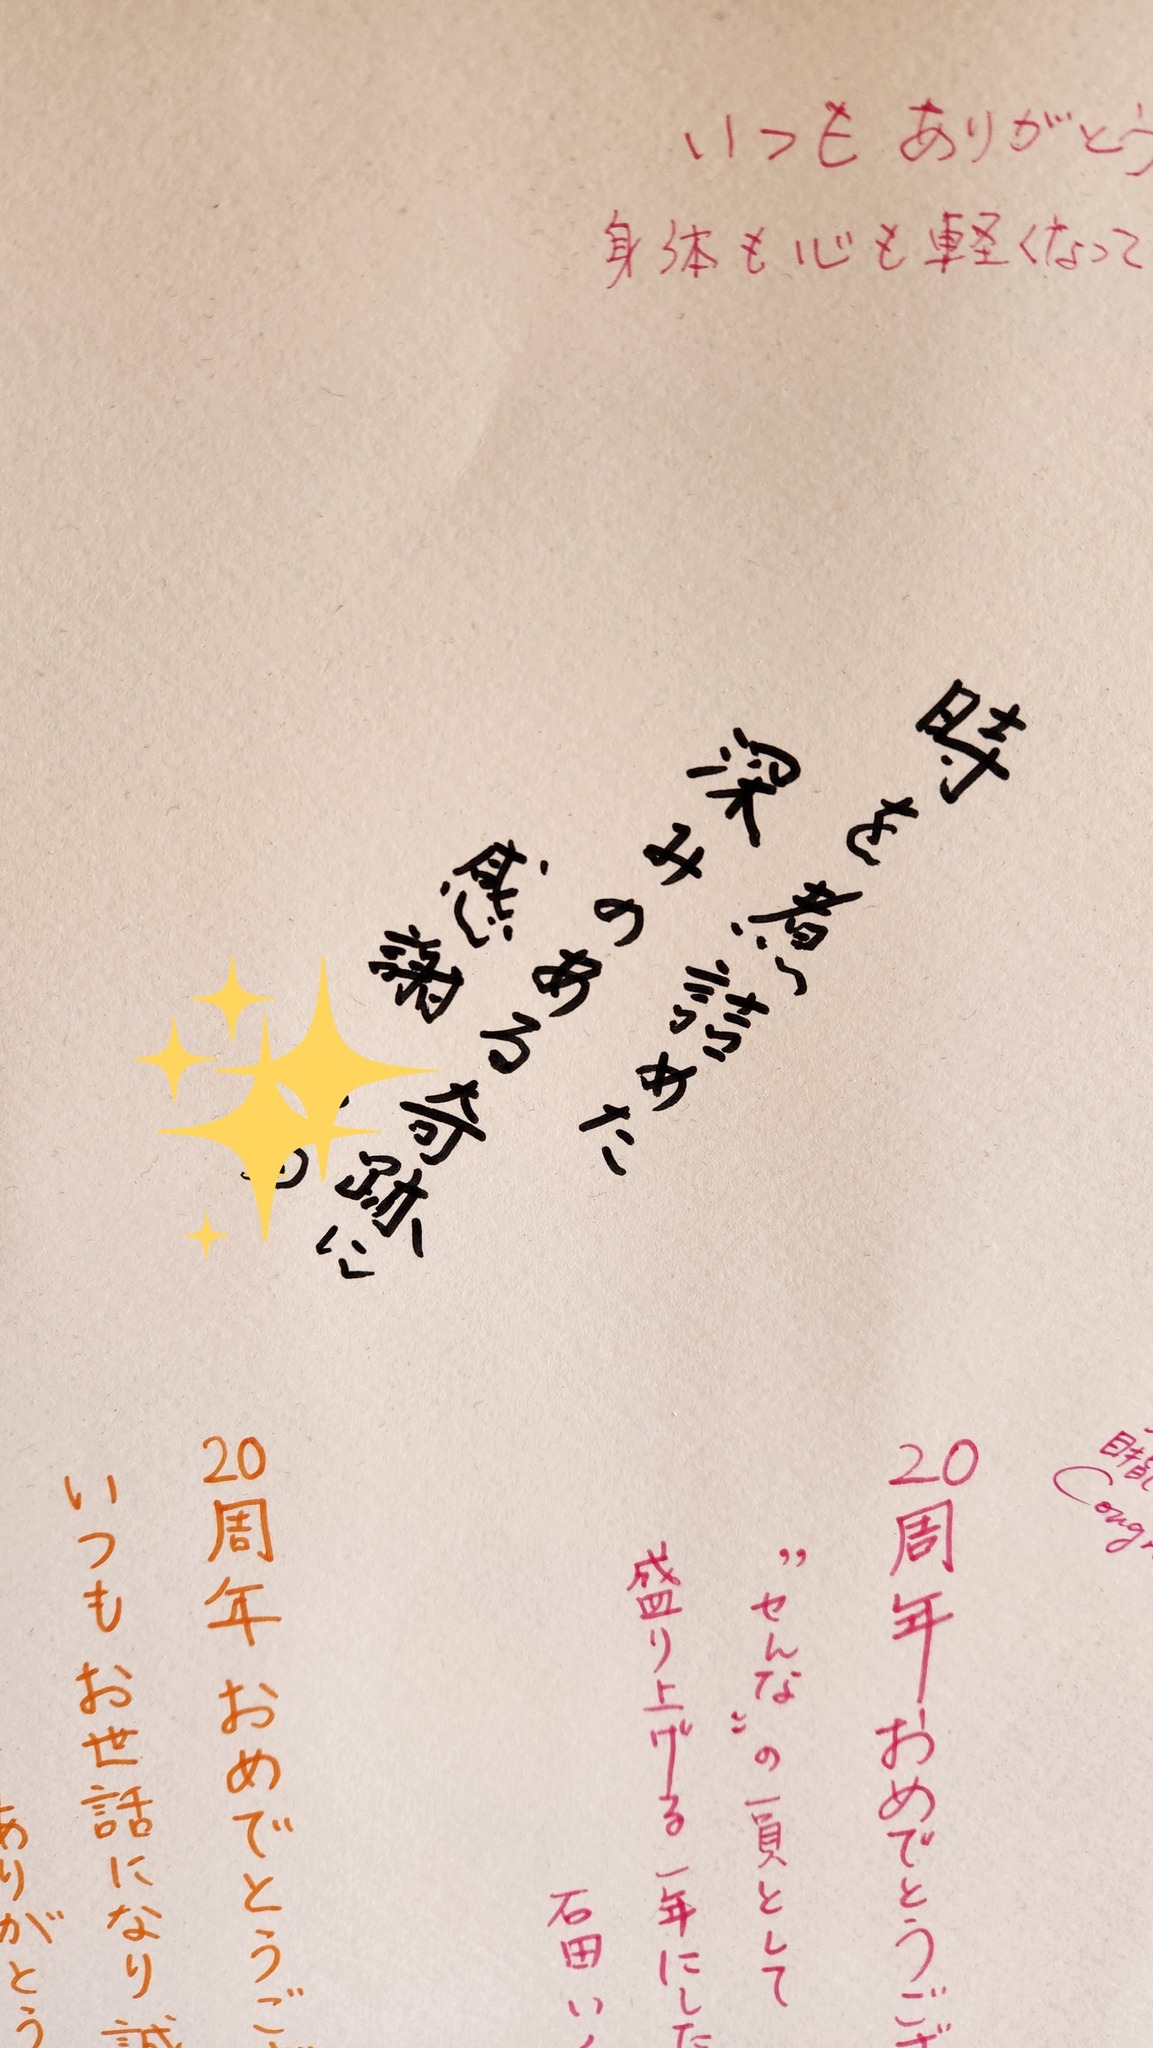 いつもありがとう
身体も心も軽くなって
時を煮詰めた
深みのある奇跡に
感謝
20周年おめでとうござ
"せんな"の一員として
盛り上げる一年にした
石田い
20周年おめでとうござ
いつもお世話になり誠
ありがとう
Cong